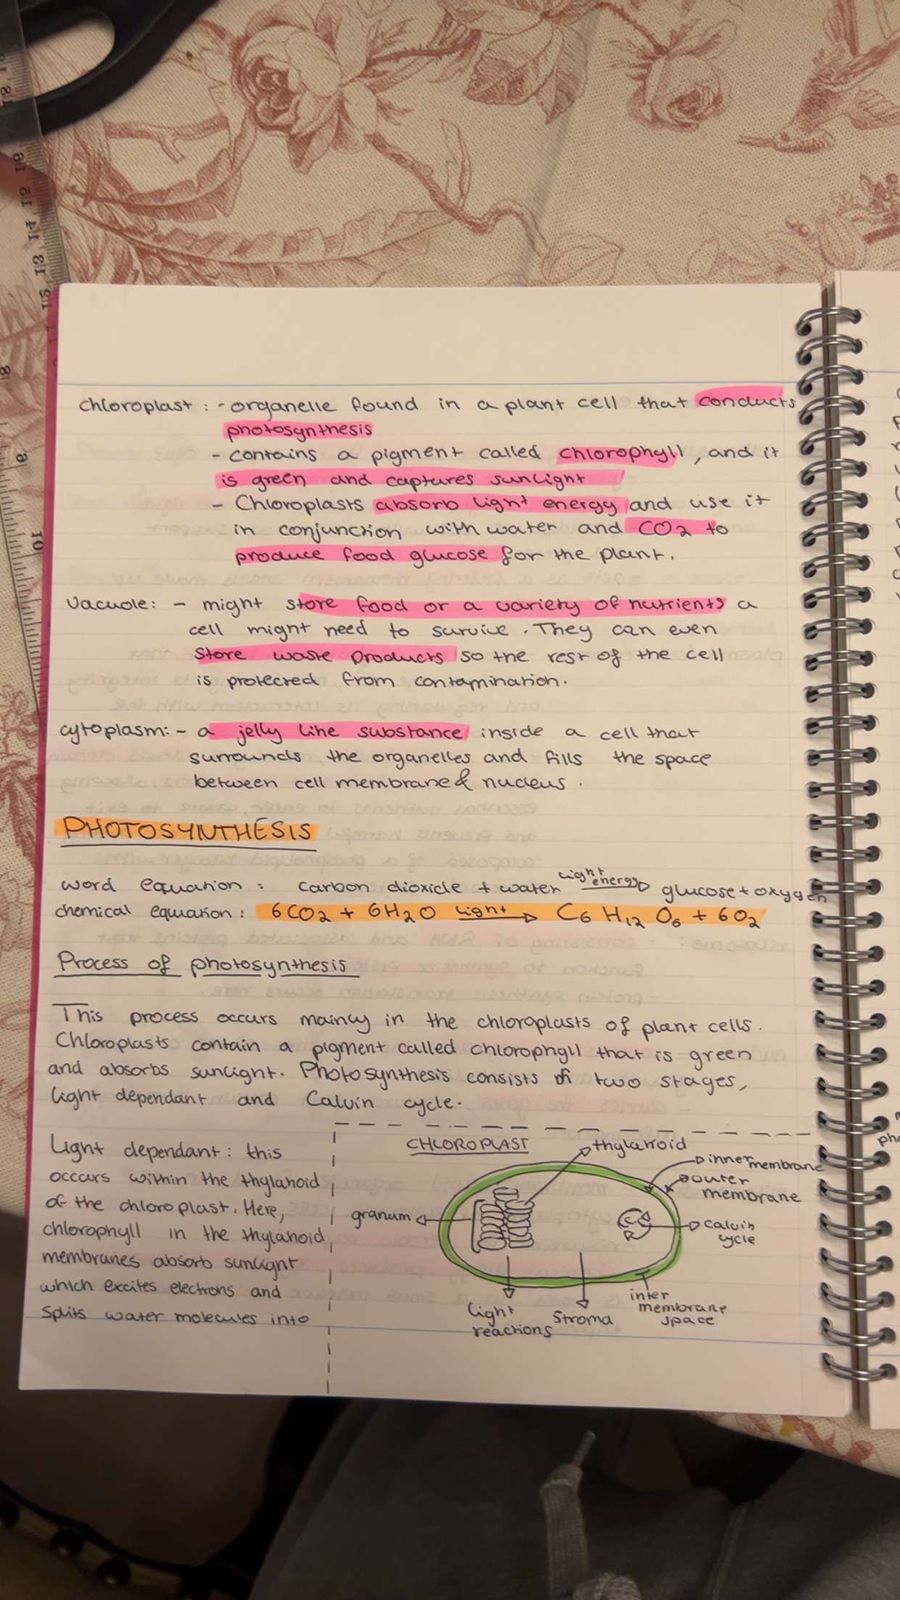 chloroplast : - organelle found in a plant cell that conducts
photosynthesis
- contains a pigment called chlorophyll, and it
is green and captures sunlight
- Chloroplasts absorb light energy and use it
in conjunction with water and CO2 to
produce food glucose for the plant.
vacuole: - might store food or a variety of nutrients a
cell might need to survive. They can even
store waste products so the rest of the cell
is protected from contamination.
cytoplasm: - a jelly like substance inside a cell that
surrounds the organelles and fills the space
between cell membrane & nucleus.
PHOTOSYNTHESIS
word equation : carbon dioxide + water light energy → glucose + oxygen
chemical equation : 6CO2 + 6H2O light → C6 H12 O6 + 6O2
Process of photosynthesis
This process occurs mainly in the chloroplasts of plant cells.
Chloroplasts contain a pigment called chlorophyll that is green
and absorbs sunlight. Photosynthesis consists of two stages,
light dependant and Calvin cycle.
Light dependant: this
occurs within the thylanoid
of the chloroplast. Here,
chlorophyll in the thylanoid
membranes absorb sunlight
which excites electrons and
splits water molecules into
CHLOROPLAST
thylanoid
inner membrane
outer
membrane
granum
calvin
cycle
inter
membrane
space
Light
reactions
Stroma
8
9
10
12
13
14
15